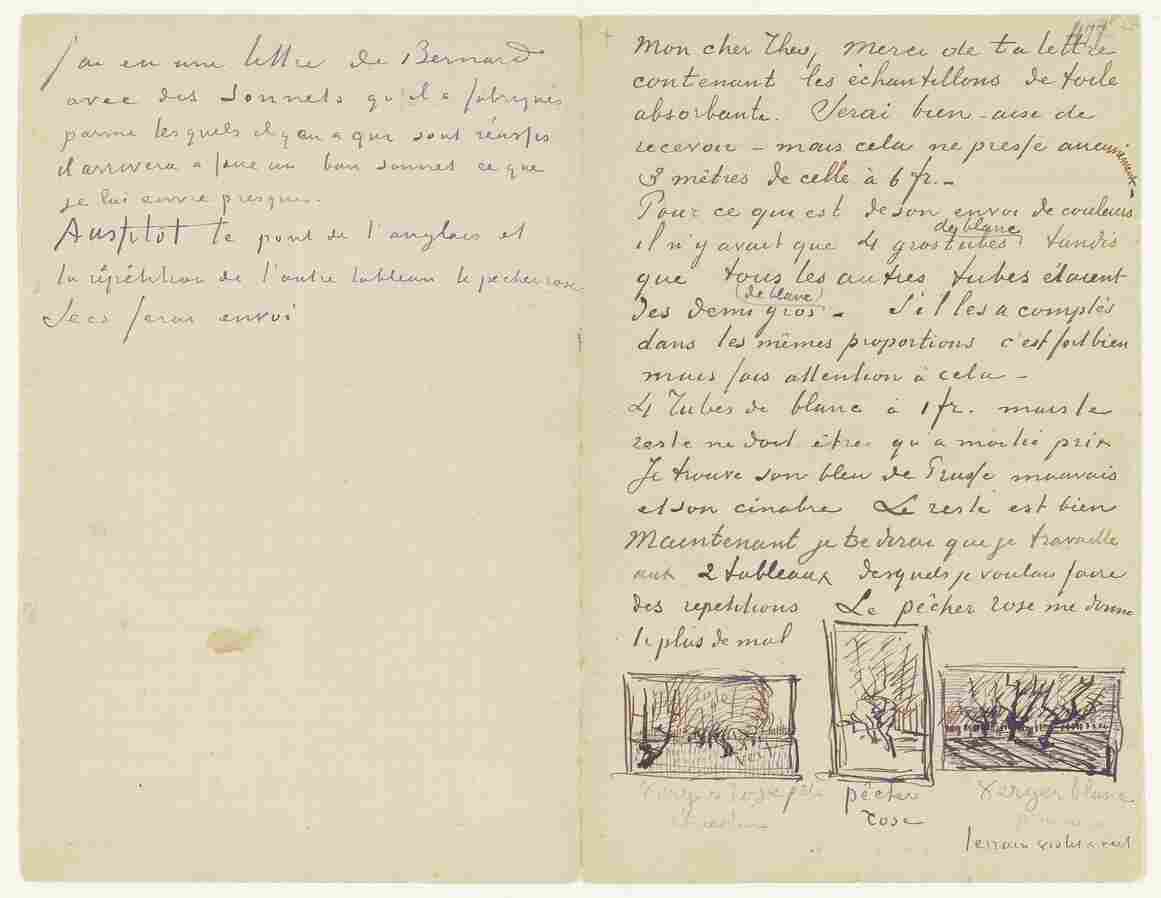 J'ai eu une lettre de Bernard
avec des sonnets qu'il a fabriqués
parmi lesquels il y en a qui sont réussis
il arrivera à faire un bon sonnet ce que
je lui envie presque.
Aussitot le pont de l'anglais et
la répétition de l'autre tableau le pecher rose
secs ferai envoi
477
Mon cher Theo, Merci de ta lettre
contenant les échantillons de toile
absorbante. Serai bien-aise de
recevoir – mais cela ne presse aucunement,
3 mètres de celle à 6 fr. –
Pour ce qui est de son envoi de couleurs
il n'y avait que 4 gros tubes de blanc tandis
que tous les autres tubes étaient
des demi gros (de blanc) – S'il les a comptés
dans les mêmes proportions c'est fort bien
mais fais attention à cela –
4 Tubes de blanc à 1 fr. mais le
reste ne doit être qu'à moitié prix
Je trouve son bleu de Prusse mauvais
et son cinabre Le reste est bien
Maintenant je te dirai que je travaille
aux 2 tableaux desquels je voulais faire
des repetitions Le pêcher rose me donne
le plus de mal
rose
vert
Verger rose
pêcher
rose
Verger blanc
terrain violet & vert